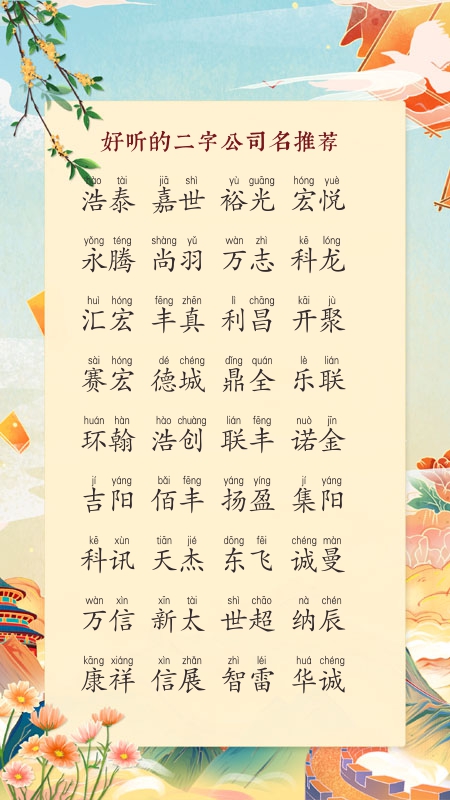 好听的二字公司名推荐
hào tài jiā shì yù guāng hóng yuè
浩泰 嘉世 裕光 宏悦
yǒng téng shàng yǔ wàn zhì kē lóng
永腾 尚羽 万志 科龙
huì hóng fēng zhēn lì chāng kāi jù
汇宏 丰真 利昌 开聚
sài hóng dé chéng dǐng quán lè lián
赛宏 德城 鼎全 乐联
huán hàn hào chuàng lián fēng nuò jīn
环翰 浩创 联丰 诺金
jí yáng bǎi fēng yáng yíng jí yáng
吉阳 佰丰 扬盈 集阳
kē xùn tiān jié dōng fēi chéng màn
科讯 天杰 东飞 诚曼
wàn xìn xīn tài shì chāo nà chén
万信 新太 世超 纳辰
kāng xiáng xìn zhǎn zhì léi huá chéng
康祥 信展 智雷 华诚